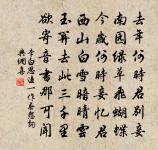 去年何時君別妾
南園綠草飛蝴蝶
今歲何時妾憶君
西山白雪暗晴雲
玉關去此三千里
欲寄音書那可聞
李白思邊一作春怨詞